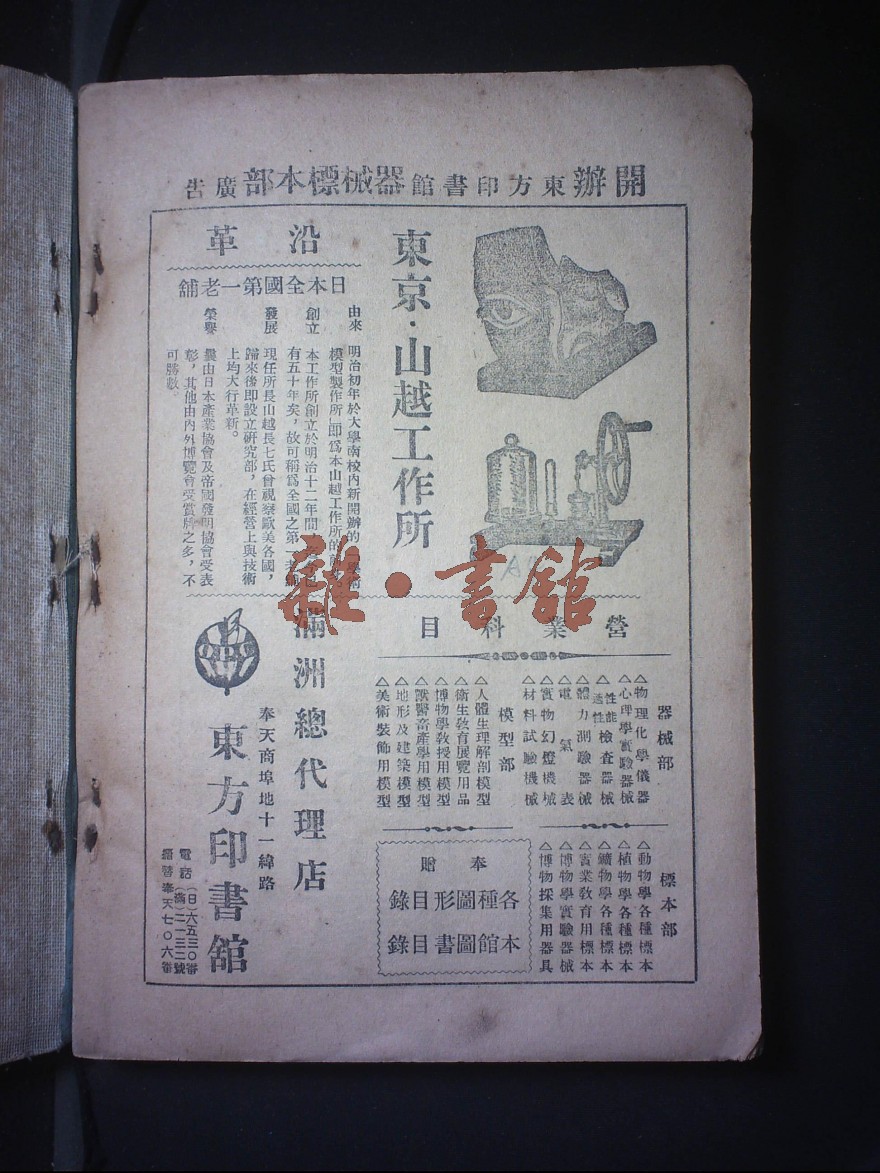 開辦東方印書館器械標本部廣告
東京·山越工作所
沿革
日本全國第一老舖
由來 明治初年於大學南校內新開辦的「
模型製作所」即爲本山越工作所的
創立 本工作所創立於明治十二年間
有五十年矣，故可稱爲全國之第一老舖
發展 現任所長山越長七氏曾視察歐美各國，
歸來後即設立研究部，在經營上與技術
上均大行革新。
榮譽 曩由日本產業協會及帝國發明協會受表
彰，其他由內外博覽會受賞牌之多，不
可勝數。
營業科目
器械部
△物理化學儀器
△心理學實驗器械
△性能適性檢查器械
△體力測驗器械
△電氣表
△實物幻燈機械
△材料試驗機械
模型部
△人體生理解剖模型
△衛生教育展覽用品
△博物學教授用模型
△獸醫畜產學用模型
△地形及建築模型
△美術裝飾用模型
標本部
△動物學各種標本
△植物學各種標本
△鑛物學各種標本
△實業教育用標本
△博物學實驗器械
△博物採集用器具
奉贈
各種圖形目錄
本館圖書目錄
滿洲總代理店
奉天商埠地十一緯路
東方印書館
電話（日）六五三〇番
（滿）二一三二號
振替奉天七〇六番
雜·書館